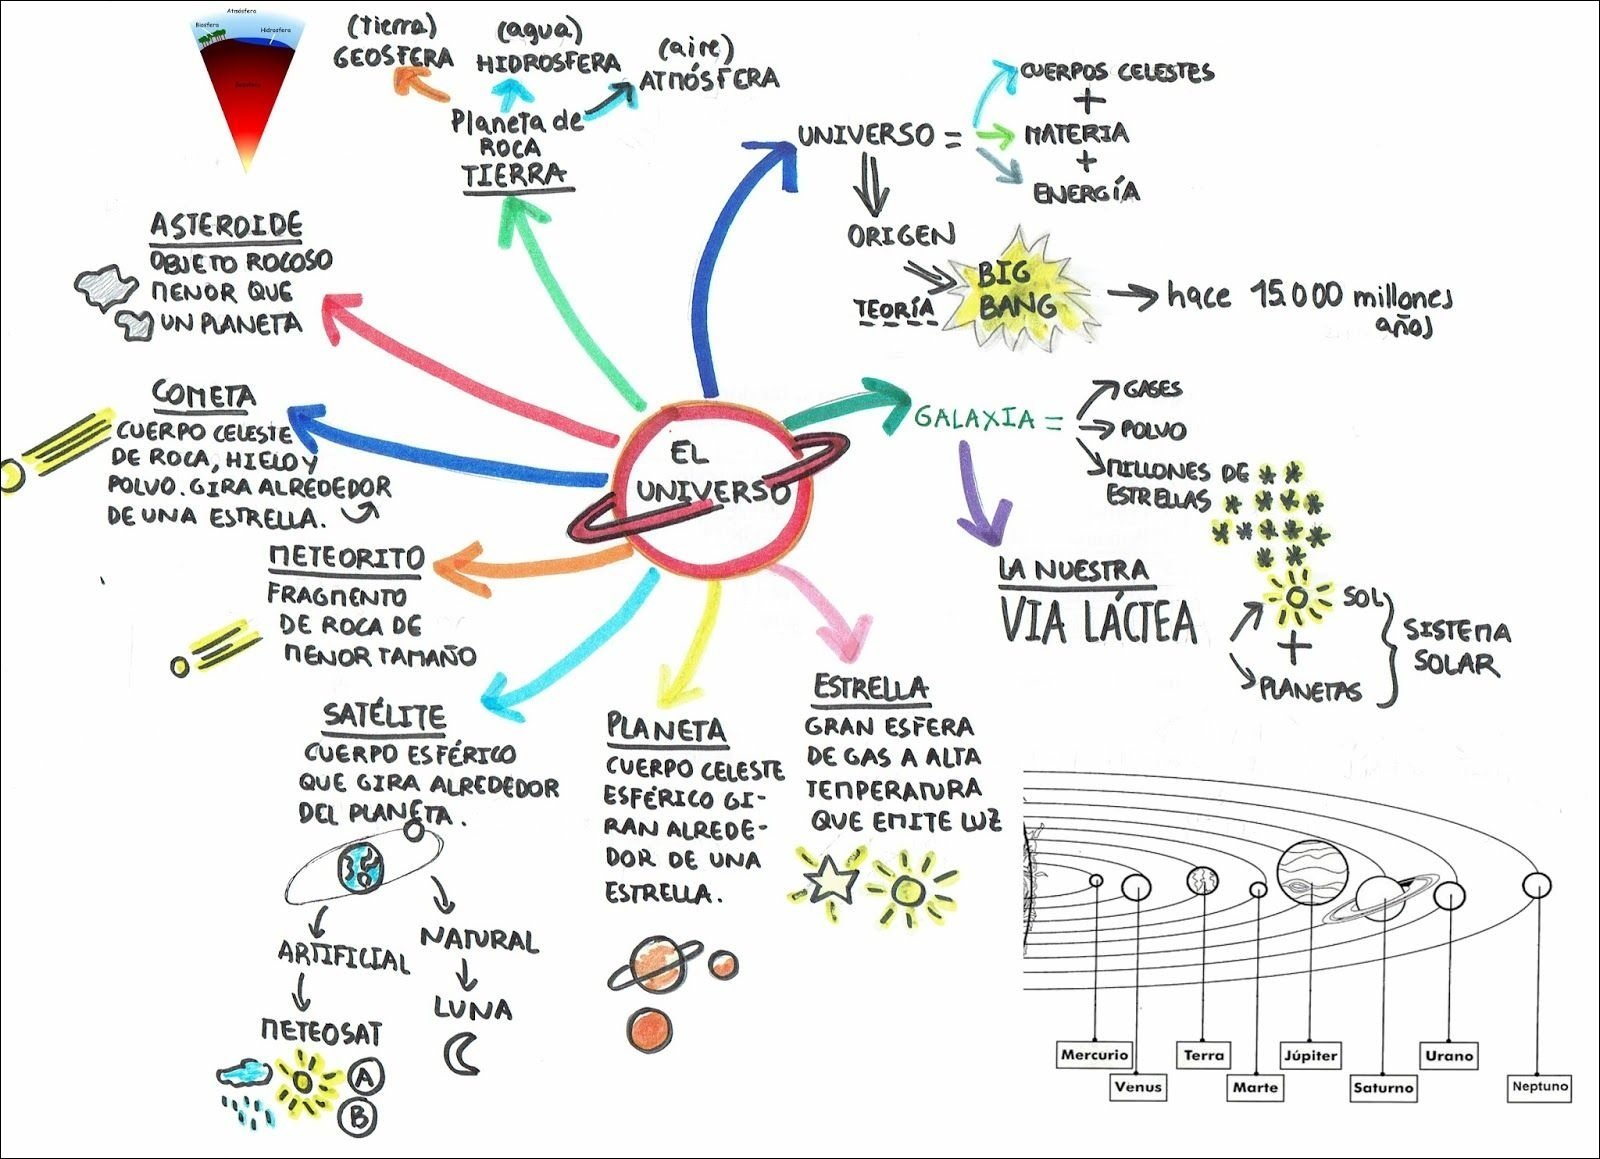 Atmósfera
Biosfera
Hidrosfera
Geosfera
(tierra)
GEOSFERA
(agua)
HIDROSFERA
(aire)
ATMÓSFERA
Planeta de
ROCA
TIERRA
UNIVERSO =
CUERPOS CELESTES
+
MATERIA
+
ENERGÍA
ORIGEN
TEORÍA
BIG
BANG
hace 15.000 millones
años
ASTEROIDE
OBJETO ROCOSO
MENOR QUE
UN PLANETA
COMETA
CUERPO CELESTE
DE ROCA, HIELO Y
POLVO. GIRA ALREDEDOR
DE UNA ESTRELLA.
EL
UNIVERSO
GALAXIA =
GASES
POLVO
MILLONES DE
ESTRELLAS
LA NUESTRA
VIA LÁCTEA
SOL
+
PLANETAS
SISTEMA
SOLAR
METEORITO
FRAGMENTO
DE ROCA DE
MENOR TAMAÑO
SATÉLITE
CUERPO ESFÉRICO
QUE GIRA ALREDEDOR
DEL PLANETA.
ARTIFICIAL
METEOSAT
A
B
NATURAL
LUNA
PLANETA
CUERPO CELESTE
ESFÉRICO GI-
RAN ALREDE-
DOR DE UNA
ESTRELLA.
ESTRELLA
GRAN ESFERA
DE GAS A ALTA
TEMPERATURA
QUE EMITE LUZ
Mercurio
Venus
Terra
Marte
Júpiter
Saturno
Urano
Neptuno